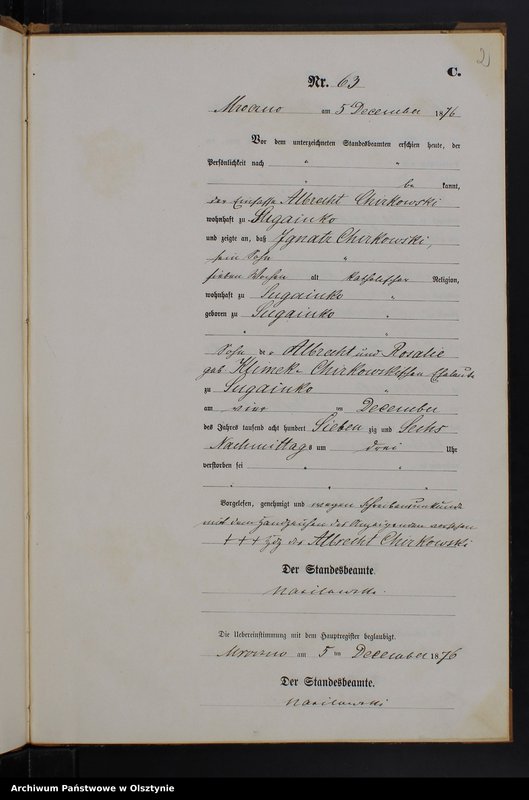 2
C.
Nr. 63
Mroczno am 5 December 1876
Vor dem unterzeichneten Standesbeamten erschien heute, der
Persönlichkeit nach " "
" be kannt,
der Einsasse Albrecht Chirkowski
wohnhaft zu Sugainko
und zeigte an, daß Ignatz Chirkowski,
sein Sohn "
sieben Wochen alt katholischer Religion,
wohnhaft zu Sugainko "
geboren zu Sugainko "
" "
Sohn der Albrecht und Rosalie
geb. Klimek Chirkowskischen Eheleute
zu Sugainko "
am vier ten December
des Jahres tausend acht hundert Sieben zig und Sechs
Nachmittags um drei Uhr
verstorben sei " "
" " "
Vorgelesen, genehmigt und wegen Schreibensunkunde
mit dem Handzeichen des Anzeigenden versehen
+++ Hdz des Albrecht Chirkowski
Der Standesbeamte.
Die Uebereinstimmung mit dem Hauptregister beglaubigt.
Mroczno am 5 ten December 1876
Der Standesbeamte.
Archiwum Państwowe w Olsztynie